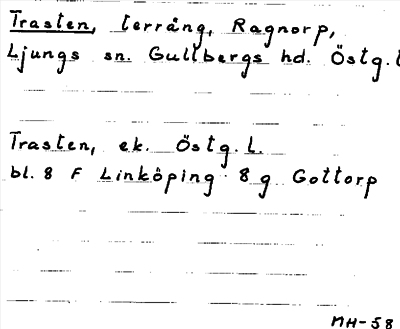 Trasten, terräng, Ragnorp,
Ljungs sn. Gullbergs hd. Östg.l
Trasten, ek. Östg.l.
bl. 8 F Linköping 8 g Gottorp
MH-58